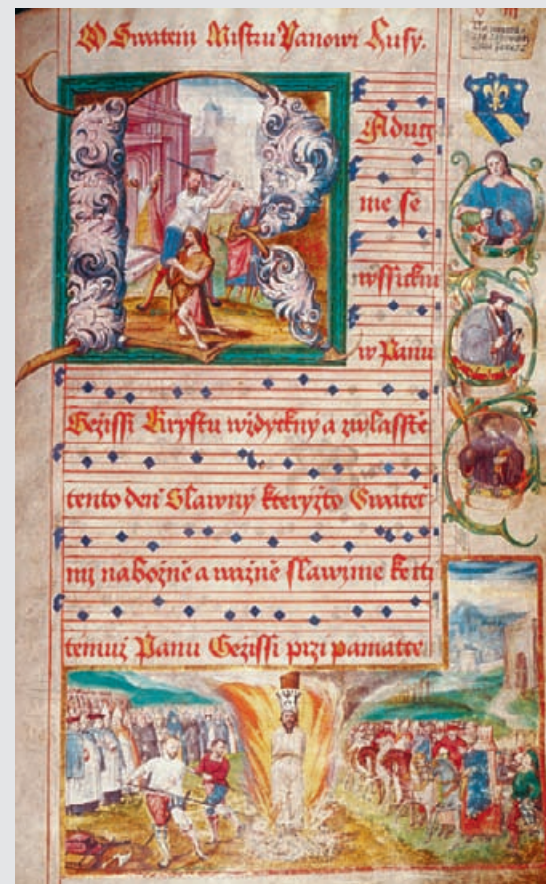 O Swatem Mistru Janowi Husy.
RAdug
me se
wssickni
w Panu
Gežissi Krystu wždyckny a zwlasstě
tento deň Slawný kteryžto Swatei
my nabožně a wažně slawime ke cti
temuž Panu Gežissi przi pamatce